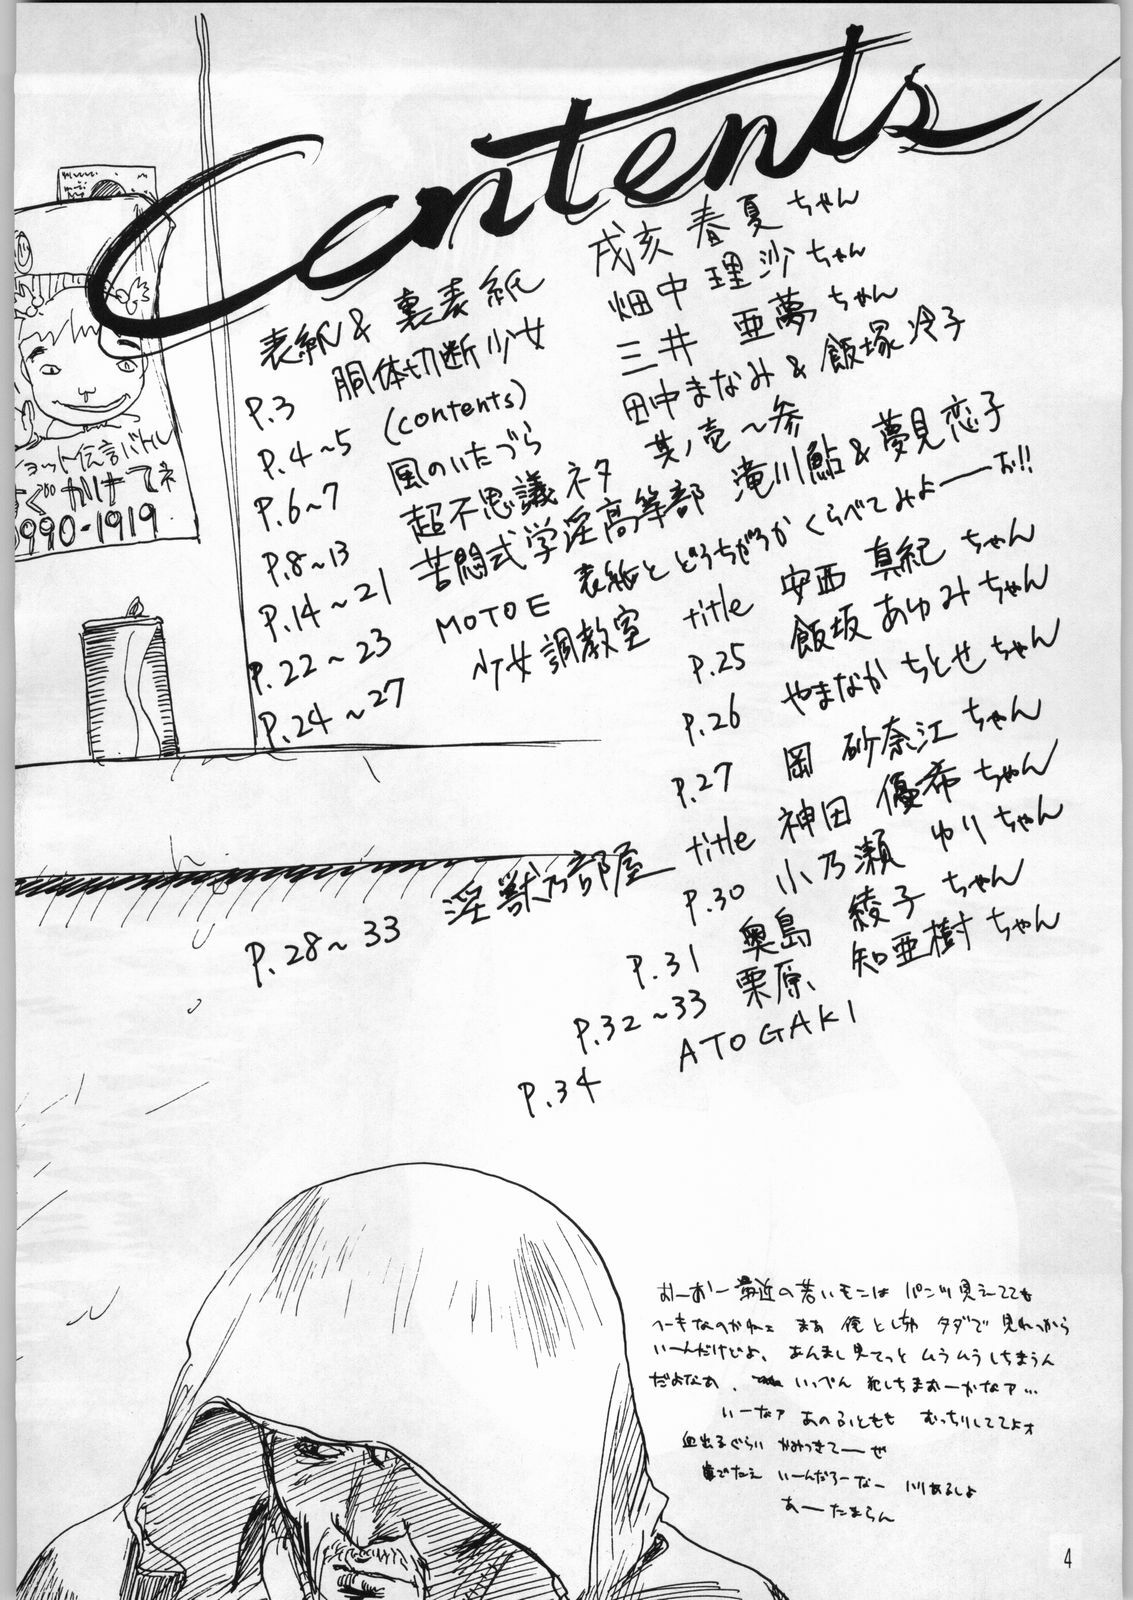 Contents
表紙&裏表紙 戌亥 春夏ちゃん
P.3 胴体切断少女 畑中 理沙ちゃん
P.4~5 (contents) 三井 亜夢ちゃん
P.6~7 風のいたづら 田中まなみ&飯塚冷子
P.8~13 超不思議ネタ 其ノ壱~参
P.14~21 苦悶式学淫高等部 滝川鮎&夢見恋子
P.22~23 MOTOE 表紙とどうちがうかくらべてみよーーお!!
P.24~27 少女調教室 title 安西 真紀ちゃん
P.25 飯坂あゆみちゃん
P.26 やまなかちとせちゃん
P.27 岡 砂奈江ちゃん
P.28~33 淫獣乃部屋 title 神田 優希ちゃん
P.30 小乃瀬 ゆりちゃん
P.31 奥島 綾子ちゃん
P.32~33 栗原、知亜樹ちゃん
P.34 ATOGAKI
ョット伝言バトル
すぐかけてネ
0990-1919
おーおー最近の若いモンはパンツ見えてても
ヘーキなのかねェ まあ俺としちゃタダで見れっから
いーんだけどよ、あんまし見てっとムラムラしちまうん
だよなぁ、いっぺん犯しちまおーかなァ…
いーなァ あのふともも むっちりしててよォ
血出るぐらいかみつきてーぜ
いーんだろーなー
あーたまらん
4